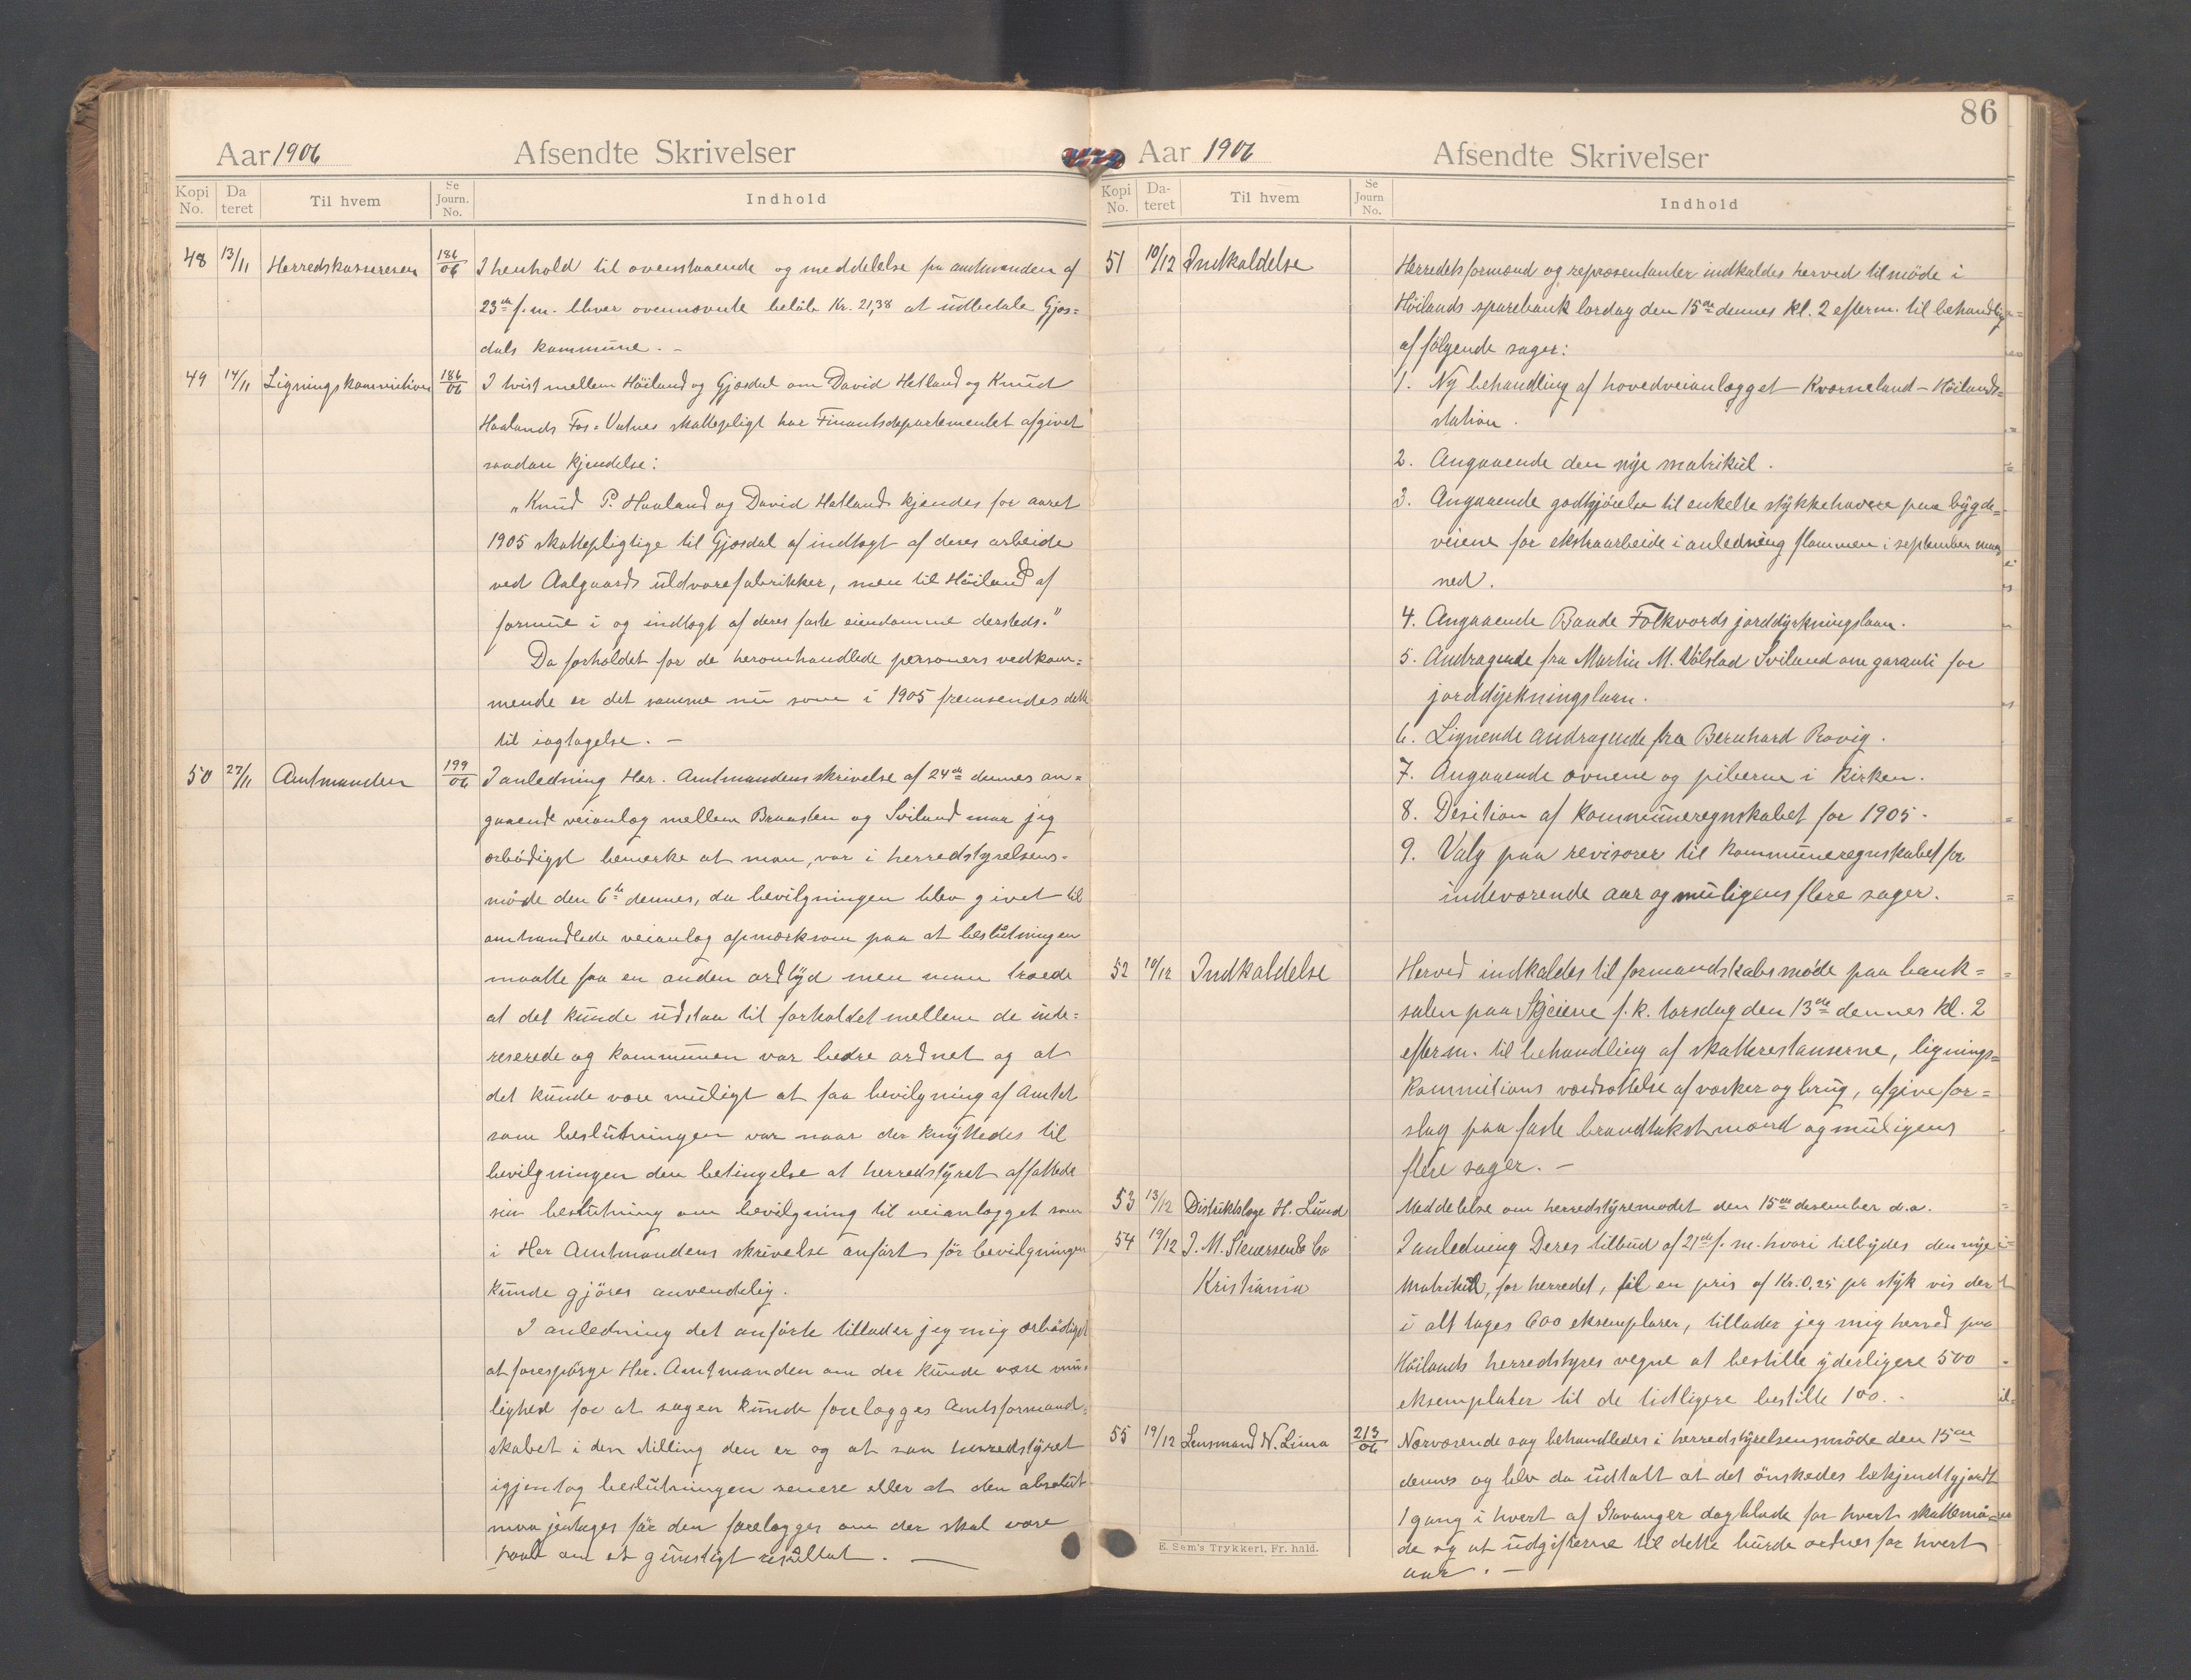 Aar 1906 Afsendte Skrivelser
Kopi No. Da teret Til hvem Se Journ. No. Indhold
48 13/11 Herredskassereren 186/06 I henhold til ovenstaaende og meddelelse fra amtmanden af
23de f. m. bliver ovennævnte beløb Kr. 21,38 at udbetale Gjæs=
dals kommune. -
49 14/11 Ligningskommisionen 186/06 I tvist mellem Höiland og Gjæsdal om David Hetland og Knud
Haalands Fos-Vatnes skattepligt har Finantsdepartementet afgivet
saadan kjendelse:
"Knud P. Haaland og David Hetland kjendes for aaret
1905 skattepligtige til Gjæsdal af indtægt af deres arbeide
ved Aalgaards uldvarefabrikker, men til Höiland af
formue i og indtægt af deres faste eiendomme dersteds."
Da forholdet for de heromhandlede personers vedkom=
mende er det samme nu som i 1905 fremsendes dette
til iagtagelse. -
50 27/11 Amtmanden 199/06 I anledning Her. Amtmandens skrivelse af 24de dennes an=
gaaende veianlæg mellem Braasten og Sviland maa jeg
ærbödigst bemerke at man, var i herredstyrelsens-
möde den 6te dennes, da bevilgningen blev givet til
omhandlede veianlæg opmærksom paa at beslutningen
maatte faa en anden ordlyd men man troede
at det kunde udstaa til forholdet mellem de inte=
reserede og kommunen var bedre ordnet og at
det kunde være muligt at faa bevilgning af Amtet
som beslutningen var naar der knyttedes til
bevilgningen den betingelse at herredstyret affattede
sin beslutning om bevilgning til veianlægget som
i Her Amtmandens skrivelse anfört för bevilgningen
kunde gjöres anvendelig.
I anledning det anförte tillader jeg mig ærbödigst
at forespörge Her. Amtmanden om der kunde være mu=
lighed for at sagen kunde forelægges Amtsformand=
skabet i den stilling den er og at saa herredstyret
igjentog beslutningen senere eller at den absolut
maa jentages för den forelægges om der skal være
haab om et gunstigt resultat. -
86
Aar 1906 Afsendte Skrivelser
Kopi No. Da- teret Til hvem Se Journ No. Indhold
51 10/12 Indkaldelse Herredets formænd og repræsentanter indkaldes herved til möde i
Höilands sparebank lördag den 15de dennes kl. 2 efterm. til behandling
af fölgende sager:
1. Ny behandling af hovedveianlægget Kværneland - Höilands=
station.
2. Angaaende den nye matrikul.
3. Angaaende godtgjörelse til enkelte stykkehavere paa bygde=
veiene for ekstraarbeide i anledning flommen i september maa
ned.
4. Angaaende Baade Folkvords jorddyrkningslaan.
5. Andragende fra Martin M. Völstad Sviland om garanti for
jorddyrkningslaan.
6. Lignende andragende fra Bernhard Rovig.
7. Angaaende ovnene og piberne i Kirken.
8. Desition af kommuneregnskabet for 1905.
9. Valg paa revisorer til kommuneregnskabet for
indeværende aar og muligens flere sager.
52 10/12 Indkaldelse Herved indkaldes til formandskabsmöde paa bank=
salen paa Skjeiene f. k. torsdag den 13de dennes kl. 2
efterm. til behandling af skatterestanserne, lignings=
kommisions værdsættelse af værker og brug, afgive for=
slag paa faste brandtakstmænd og muligens
flere sager. -
53 13/12 Distriktslæge H. Lund Meddelelse om herredstyremödet den 15de desember d.a.
54 19/12 J. M. Stenersen & Co I anledning Deres tilbud af 21de f. m. hvori tilbydes den nye
Kristiania Matrikul, for herredet, til en pris af Kr. 0,25 pr styk vis der
i alt tages 600 eksemplarer, tillader jeg mig herved paa
Höilands herredstyres vegne at bestille yderligere 500
eksemplarer til de tidligere bestilte 100.
55 19/12 Lensmand N. Lima 213/06 Nærværende sag behandledes i herredstyrelsensmöde den 15de
dennes og blev da udtalt at det önskedes bekjendtgjordt
1 gang i hvert af Stavanger dagblade for hvert skattemö=
de og at udgifterne til dette burde ordnes for hvert
aar. -
E. Sem's Trykkeri, Fr. hald.